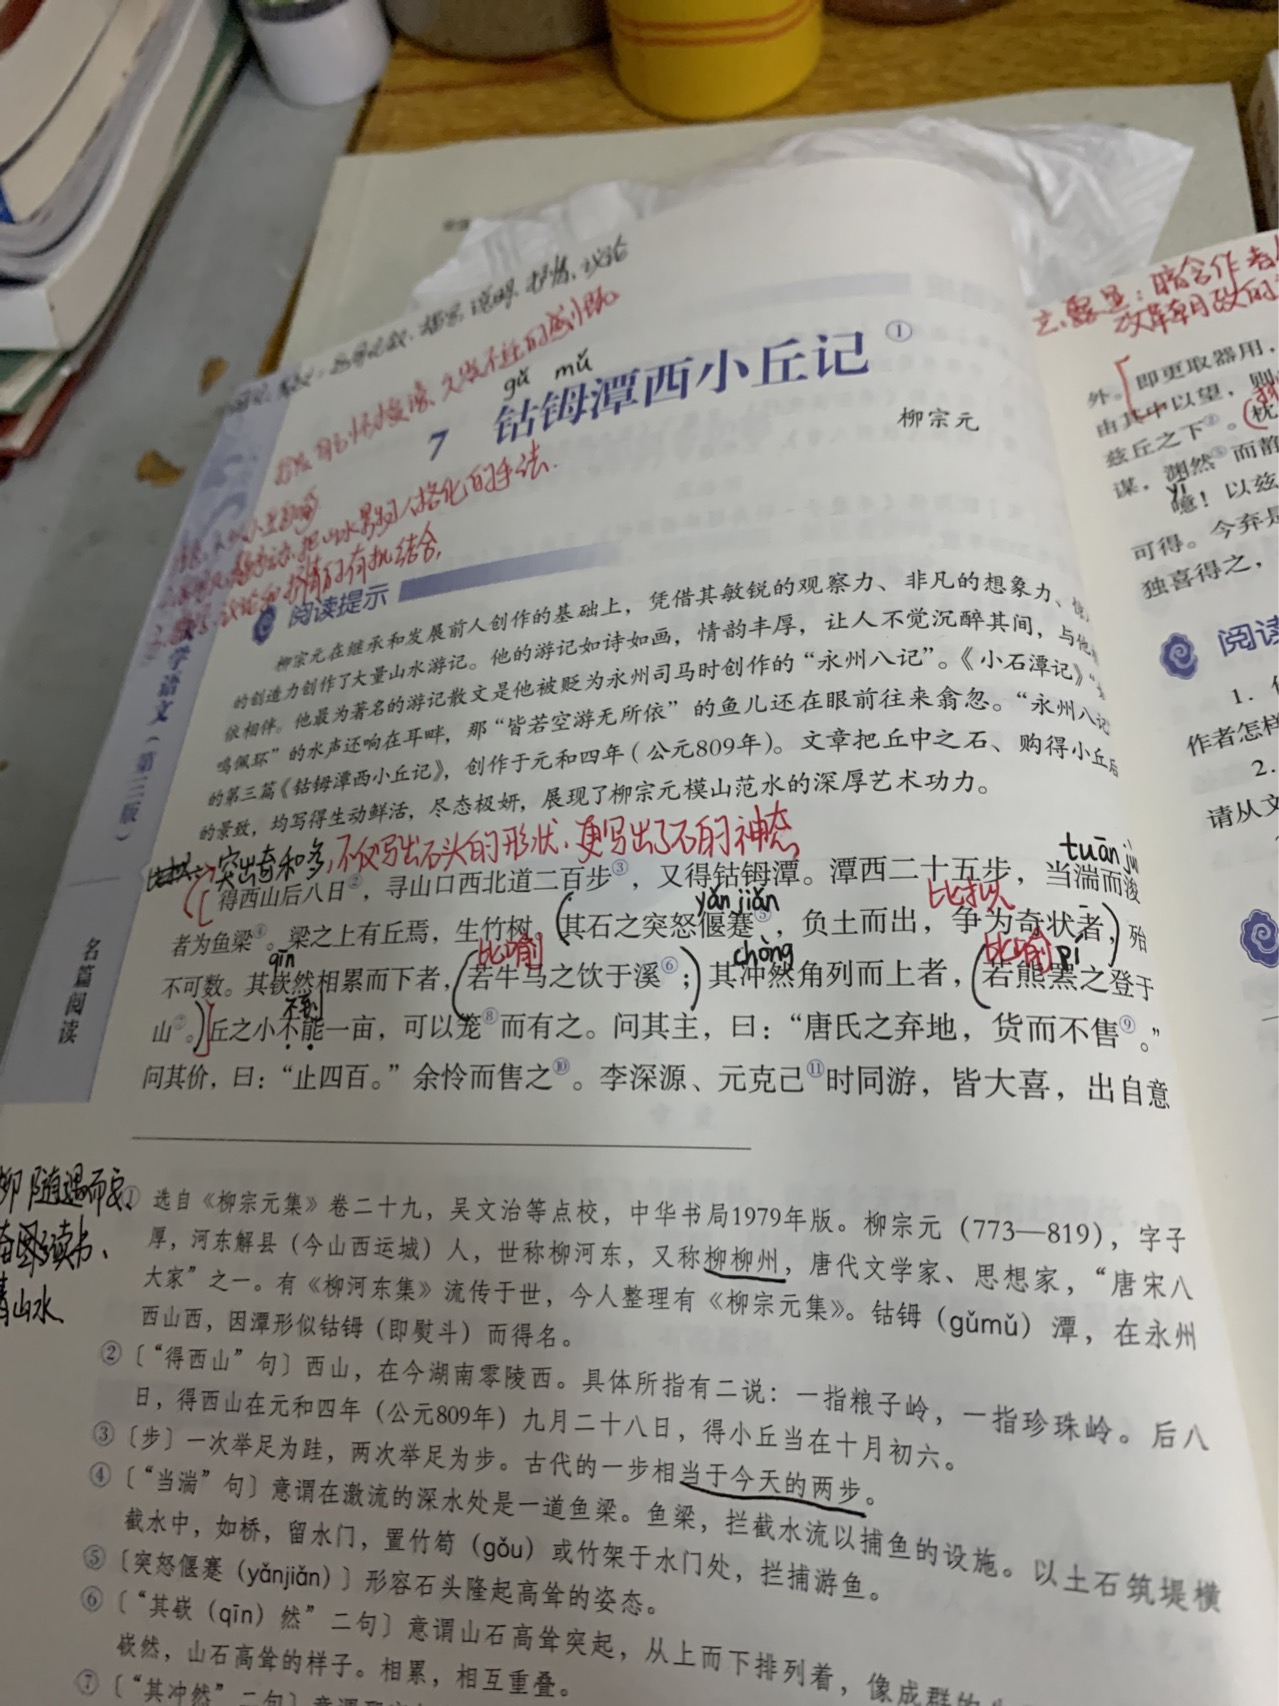 gǔ mǔ
7 钴鉧潭西小丘记①
柳宗元
把山水景物人格化的手法.
抒情的有机结合,
阅读提示
柳宗元在继承和发展前人创作的基础上，凭借其敏锐的观察力、非凡的想象力、
的创造力创作了大量山水游记。他的游记如诗如画，情韵丰厚，让人不觉沉醉其间，与他
依相伴。他最为著名的游记散文是他被贬为永州司马时创作的“永州八记”。《小石潭记》“
鸣佩环”的水声还响在耳畔，那“皆若空游无所依”的鱼儿还在眼前往来翕忽。“永州八记
的第三篇《钴鉧潭西小丘记》，创作于元和四年（公元809年）。文章把丘中之石、购得小丘后
的景致，均写得生动鲜活，尽态极妍，展现了柳宗元模山范水的深厚艺术功力。
突出奇和多,不仅写出石头的形状,更写出了石的神态
tuān jùn
得西山后八日②，寻山口西北道二百步③，又得钴鉧潭。潭西二十五步，当湍而浚
yǎn jiǎn 比拟
者为鱼梁④。梁之上有丘焉，生竹树。其石之突怒偃蹇⑤，负土而出，争为奇状者，殆
qīn 比喻 chòng 比喻 pí
不可数。其嵚然相累而下者，若牛马之饮于溪⑥；其冲然角列而上者，若熊罴之登于
不到
山⑦。丘之小不能一亩，可以笼⑧而有之。问其主，曰：“唐氏之弃地，货而不售⑨。”
问其价，曰：“止四百。”余怜而售之⑩。李深源、元克己⑪时同游，皆大喜，出自意
① 选自《柳宗元集》卷二十九，吴文治等点校，中华书局1979年版。柳宗元（773—819），字子
厚，河东解县（今山西运城）人，世称柳河东，又称柳柳州，唐代文学家、思想家，“唐宋八
大家”之一。有《柳河东集》流传于世，今人整理有《柳宗元集》。钴鉧（gǔmǔ）潭，在永州
西山西，因潭形似钴鉧（即熨斗）而得名。
② 〔“得西山”句〕西山，在今湖南零陵西。具体所指有二说：一指粮子岭，一指珍珠岭。后八
日，得西山在元和四年（公元809年）九月二十八日，得小丘当在十月初六。
③ 〔步〕一次举足为跬，两次举足为步。古代的一步相当于今天的两步。
④ 〔“当湍”句〕意谓在激流的深水处是一道鱼梁。鱼梁，拦截水流以捕鱼的设施。以土石筑堤横
截水中，如桥，留水门，置竹笱（gǒu）或竹架于水门处，拦捕游鱼。
⑤ 〔突怒偃蹇（yǎnjiǎn）〕形容石头隆起高耸的姿态。
⑥ 〔“其嵚（qīn）然”二句〕意谓山石高耸突起，从上而下排列着，像成群的
嵚然，山石高耸的样子。相累，相互重叠。
⑦ 〔“其冲然”二句〕意谓
柳随遇而安、
读书、
山水
大学语文（第三版）
名篇阅读
暗含作者
改革朝政的
外。即更取器用，
由其中以望，则
兹丘之下②。枕
谋，渊然③而静
yī
噫！以兹
可得。今弃是
独喜得之，
阅读
1.
作者怎样
2.
请从文